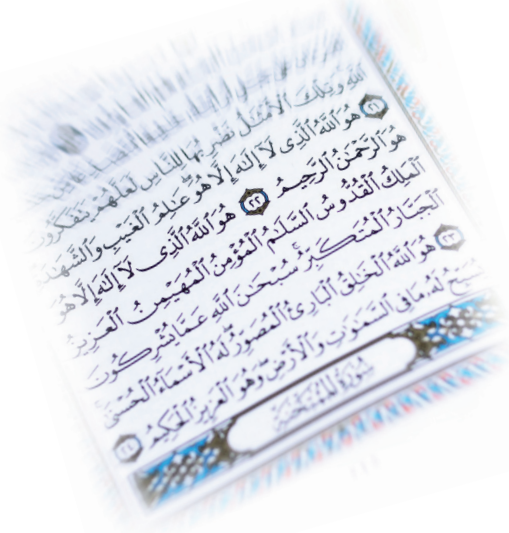 اللَّهِ وَتِلْكَ الْأَمْثَالُ نَضْرِبُهَا لِلنَّاسِ لَعَلَّهُمْ يَتَفَكَّرُونَ
﴿٢١﴾ هُوَ اللَّهُ الَّذِي لَا إِلَٰهَ إِلَّا هُوَ عَالِمُ الْغَيْبِ وَالشَّهَادَةِ
هُوَ الرَّحْمَٰنُ الرَّحِيمُ ﴿٢٢﴾ هُوَ اللَّهُ الَّذِي لَا إِلَٰهَ إِلَّا هُوَ
الْمَلِكُ الْقُدُّوسُ السَّلَامُ الْمُؤْمِنُ الْمُهَيْمِنُ الْعَزِيزُ
الْجَبَّارُ الْمُتَكَبِّرُ سُبْحَانَ اللَّهِ عَمَّا يُشْرِكُونَ
﴿٢٣﴾ هُوَ اللَّهُ الْخَالِقُ الْبَارِئُ الْمُصَوِّرُ لَهُ الْأَسْمَاءُ الْحُسْنَىٰ
يُسَبِّحُ لَهُ مَا فِي السَّمَاوَاتِ وَالْأَرْضِ وَهُوَ الْعَزِيزُ الْحَكِيمُ ﴿٢٤﴾
سُورَةُ الْمُمْتَحَنَةِ